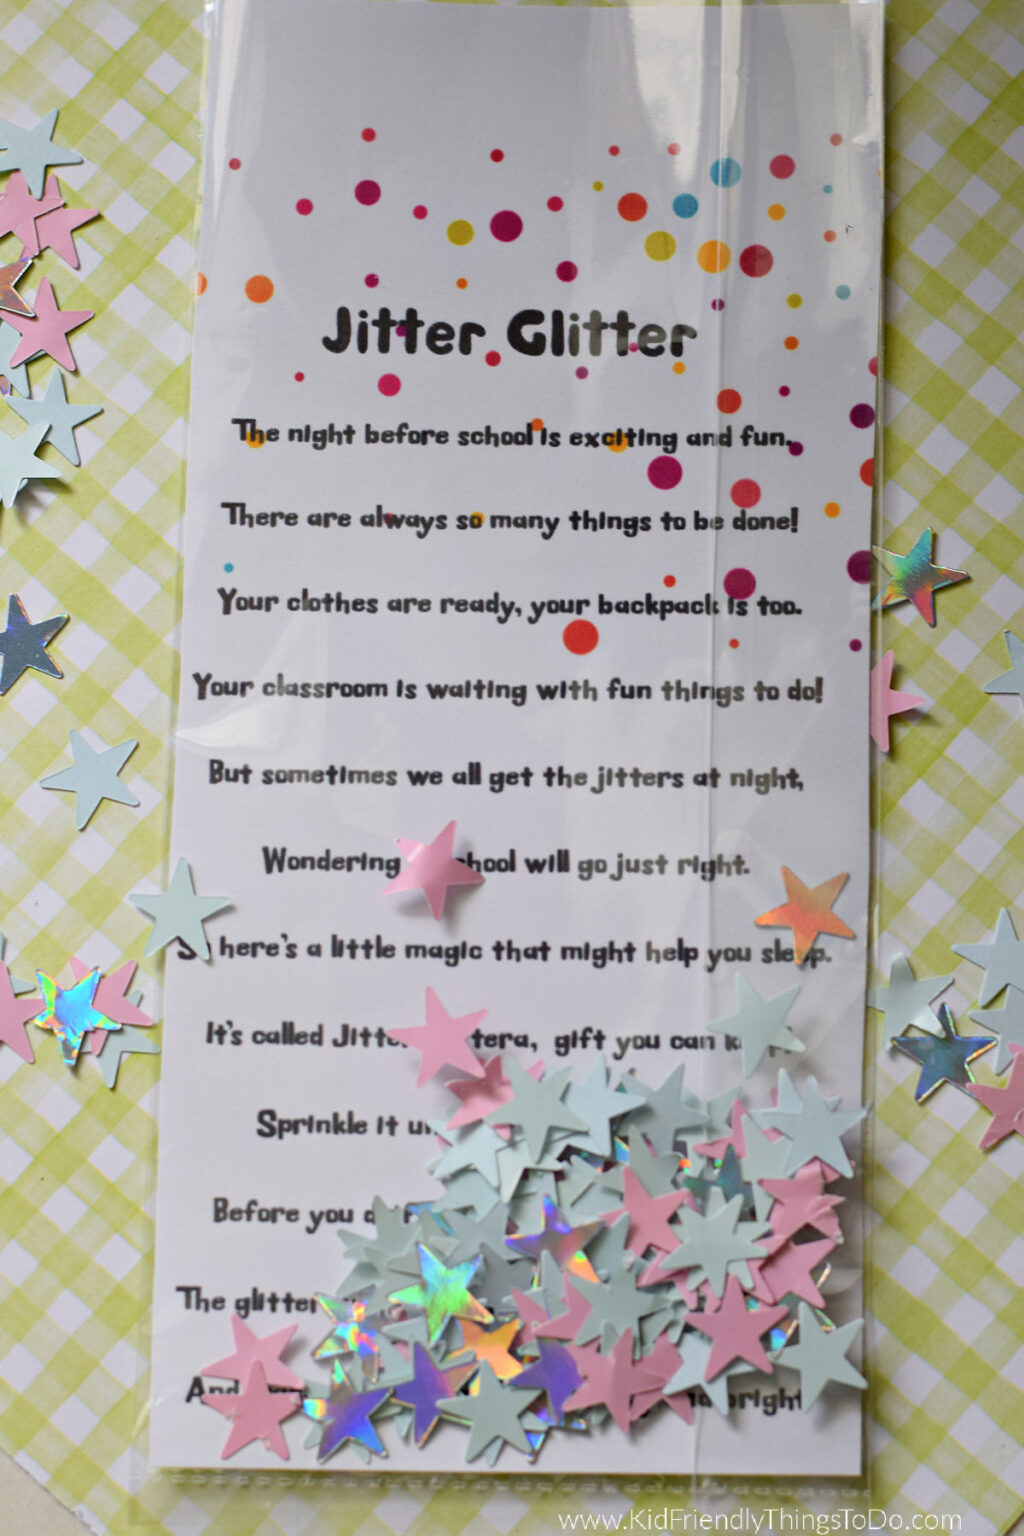 Jitter Glitter
The night before school is exciting and fun,
There are always so many things to be done!
Your clothes are ready, your backpack is too.
Your classroom is waiting with fun things to do!
But sometimes we all get the jitters at night,
Wondering school will go just right.
So here's a little magic that might help you sleep.
It's called Jitter Glittera, gift you can keep
Sprinkle it
Before you
The glitter
And bright
www.KidFriendlyThingsToDo.com